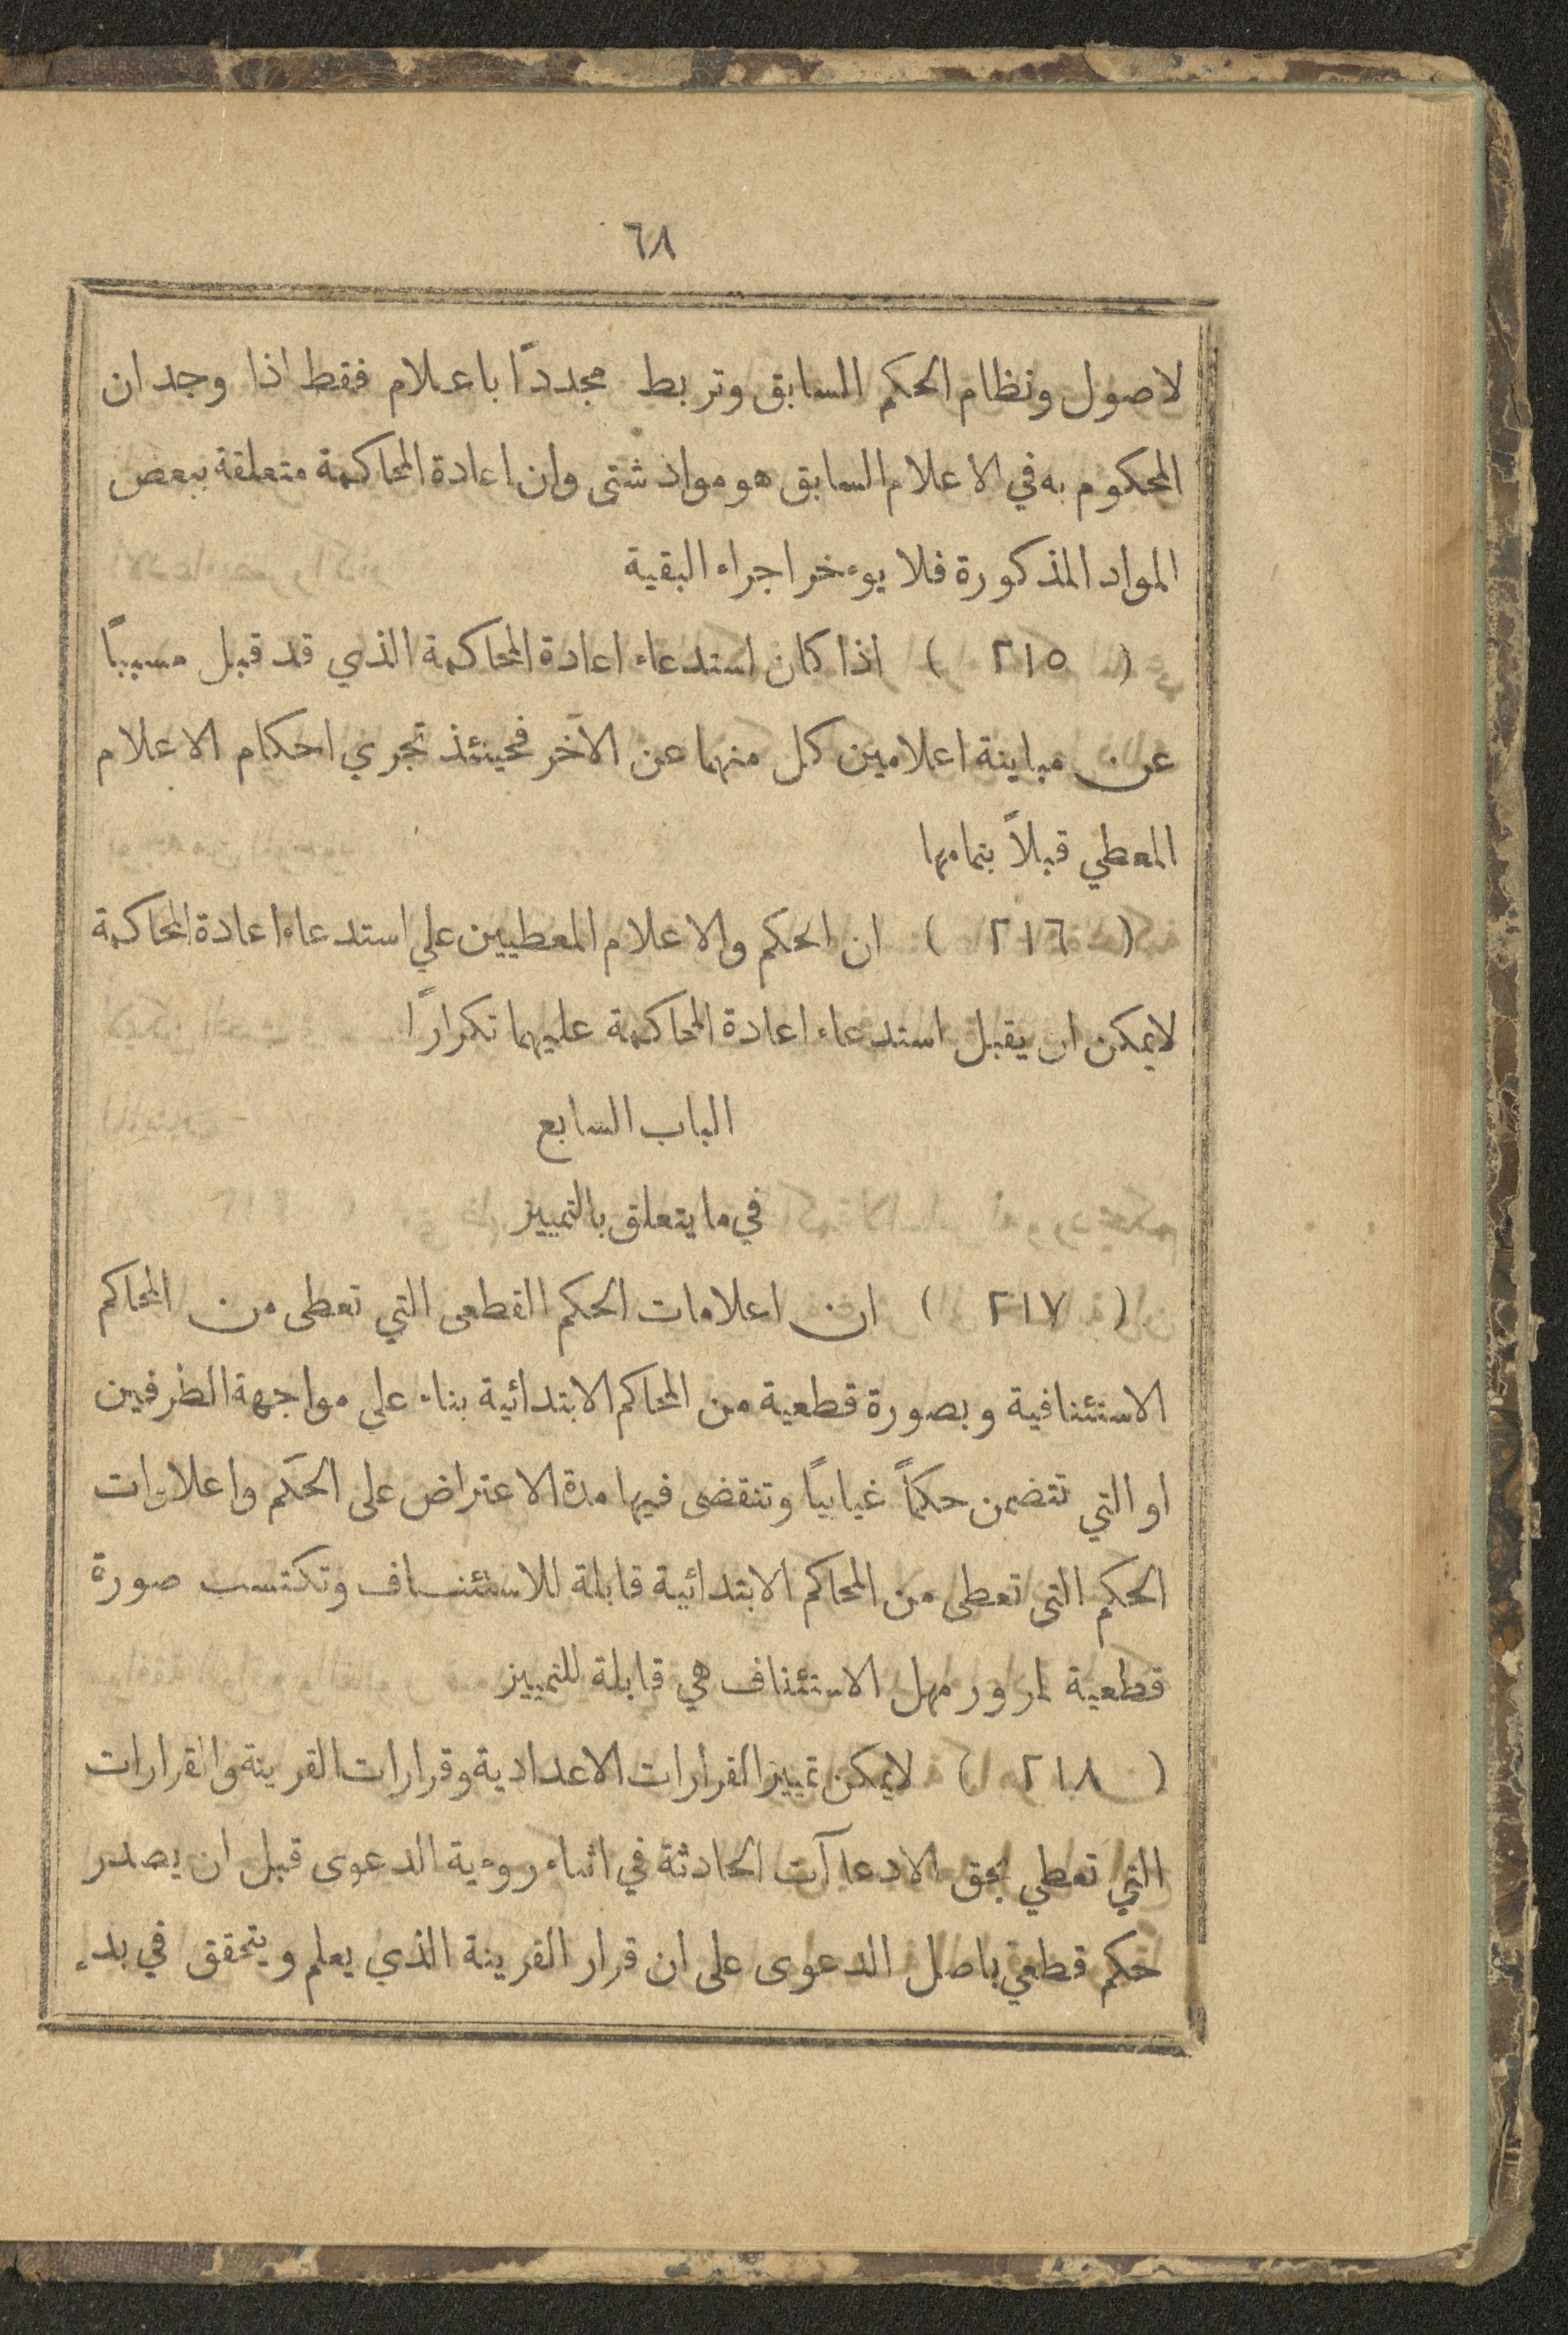 ٦٨
لاصول ونظام الحكم السابق وتربط مجدداً باعلام فقط اذا وجد ان
المحكوم به في الاعلام السابق هو مواد شتى وان اعادة المحاكمة متعلقة ببعض
المواد المذكورة فلا يوءخر اجراء البقية
( ٢١٥ ) اذا كان استدعاء اعادة المحاكمة الذي قد قبل مسبباً
عن مباينة اعلامين كل منهما عن الآخر فحينئذ تجري احكام الاعلام
المعطي قبلاً بتمامها
( ٢١٦ ) ان الحكم والاعلام المعطيين علي استدعاء اعادة المحاكمة
لايمكن ان يقبل استدعاء اعادة المحاكمة عليهما تكراراً
الباب السابع
في ما يتعلق بالتمييز
( ٢١٧ ) ان اعلامات الحكم القطعى التي تعطى من المحاكم
الاستئنافية وبصورة قطعية من المحاكم الابتدائية بناء على مواجهة الطرفين
او التي تتضمن حكماً غيابياً وتنقضى فيها مدة الاعتراض على الحكم واعلامات
الحكم التى تعطى من المحاكم الابتدائية قابلة للاستئناف وتكتسب صورة
قطعية لمرور مهل الاستئناف هي قابلة للتمييز
( ٢١٨ ) لايمكن تمييز القرارات الاعدادية وقرارات القرينة والقرارات
التي تعطي بحق الادعاآت الحادثة في اثناء روءية الدعوى قبل ان يصدر
حكم قطعي باصل الدعوى على ان قرار القرينة الذي يعلم ويتحقق في بدء